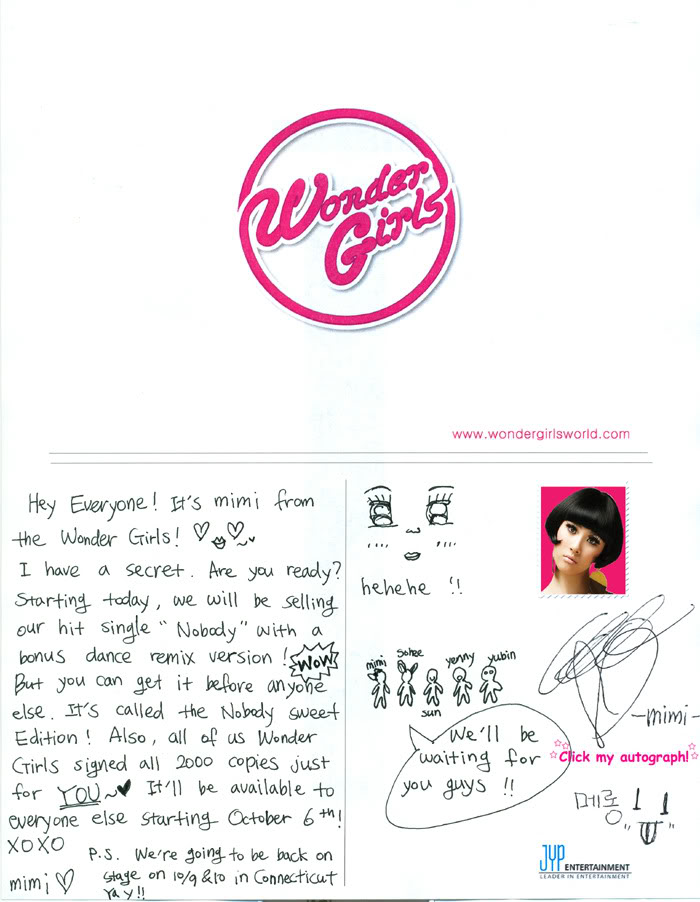 Wonder
Girls
www.wondergirlsworld.com
Hey Everyone! It's mimi from
the Wonder Girls!
I have a secret. Are you ready?
Starting today, we will be selling
our hit single "Nobody" with a
bonus dance remix version! WOW
But you can get it before anyone
else. It's called the Nobody sweet
Edition! Also, all of us Wonder
Girls signed all 2000 copies just
for YOU~ It'll be available to
everyone else starting October 6th!
XOXO
mimi
P.S. We're going to be back on
stage on 10/9 &10 in Connecticut
Yay!!
hehehe !!
mimi sohee sun yenny yubin
We'll be
waiting for
you guys !!
-mimi-
Click my autograph!
메롱
JYP ENTERTAINMENT
LEADER IN ENTERTAINMENT